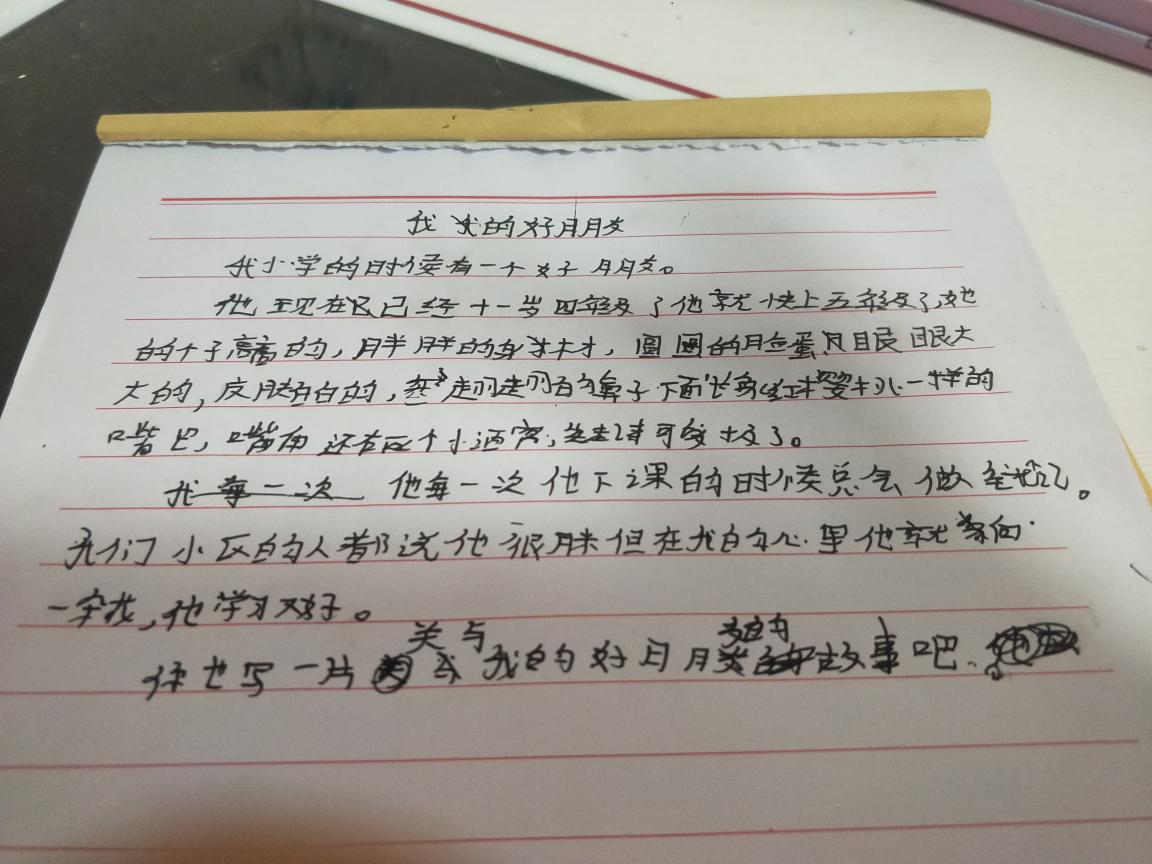 我 我的好朋友
我小学的时候有一个好朋友。
他现在已已经十一岁四年级了他就快上五年级了,她
的个子高高的,胖胖的身材,圆圆的脸蛋,眼眼大
大的,皮肤白白的,鼻子下面长着 一样的
嘴巴,嘴角还有两个小酒窝, 可爱极了。
我每一次 他每一次他下课的时候总会做笔记。
我们小区的人都说他很胖但在我的心里他就像
一 ,他学习又好。
你也写一片关与我的好朋友的故事吧。